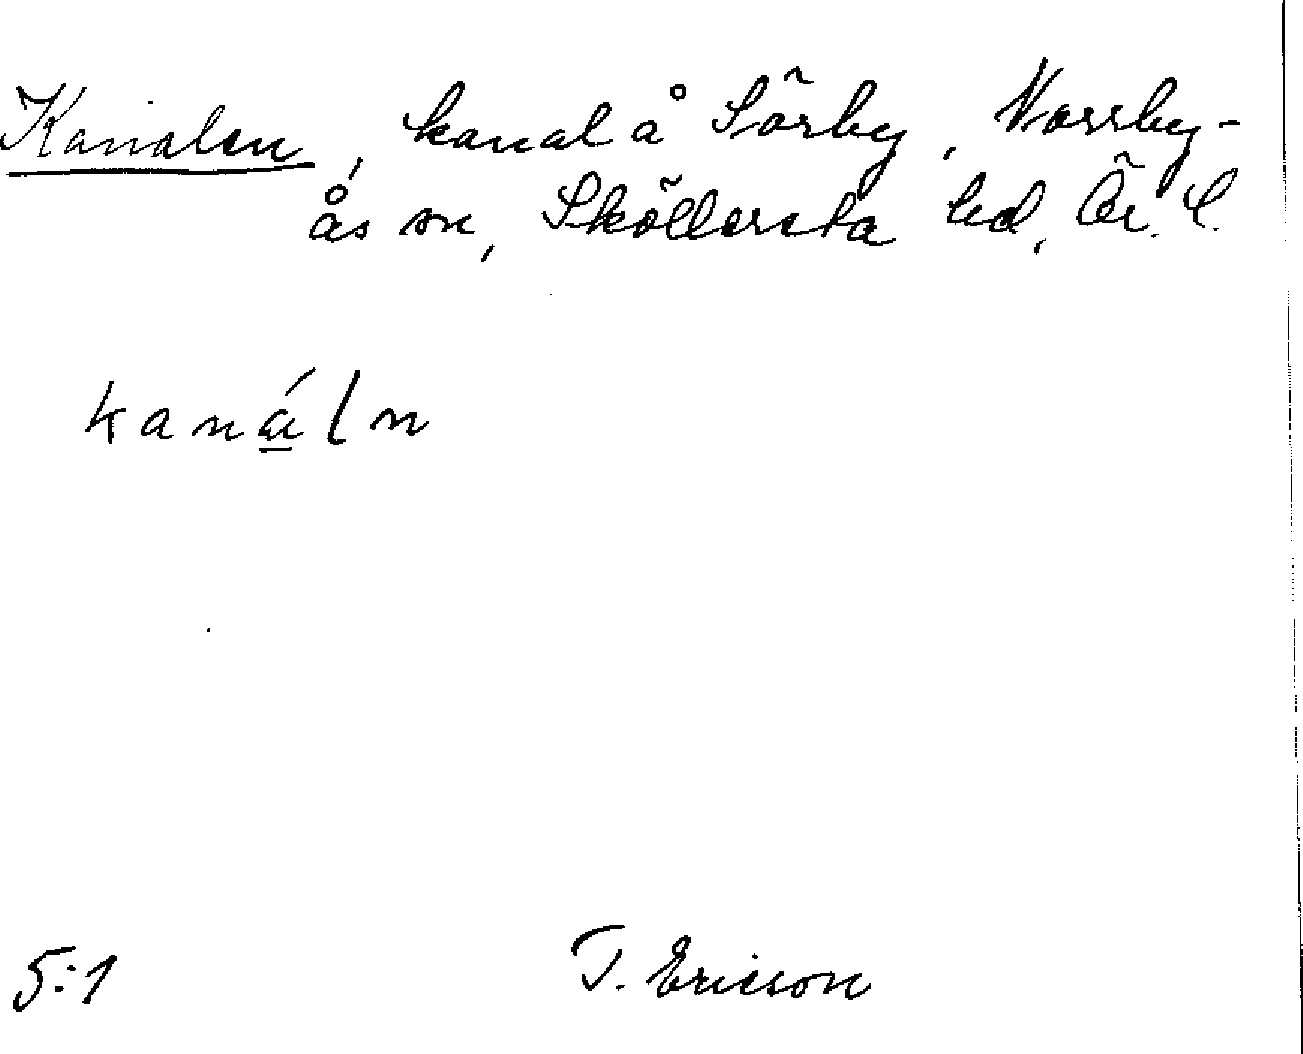 Kanalen, kanal å Sörby, Norrby-
ås sn, Sköllersta hd, Ör. L.
kanáln
5:1
T. Ericson